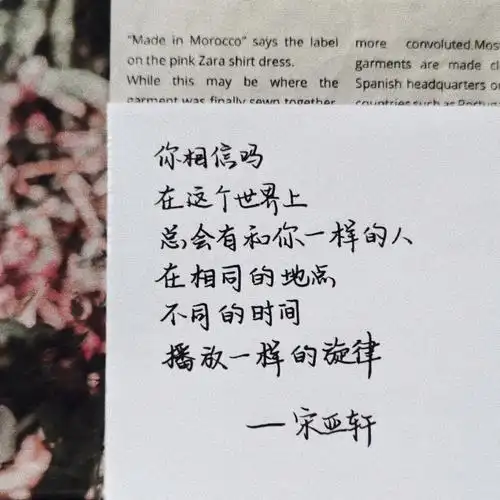 "Made in Morocco" says the label
on the pink Zara shirt dress.
While this may be where the
garment was finally sewn together
more convoluted.Mos
garments are made cl
Spanish headquarters o
countries such as Portug
你相信吗
在这个世界上
总会有和你一样的人
在相同的地点
不同的时间
播放一样的旋律
—宋亚轩